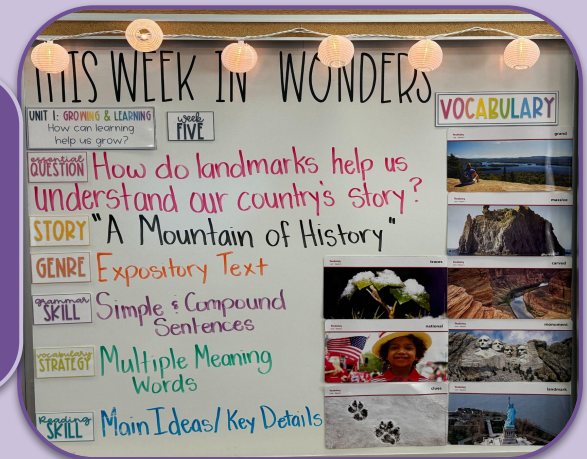 THIS WEEK IN WONDERS
UNIT 1: GROWING & LEARNING
How can learning
help us grow?
week
FIVE
VOCABULARY
essential
QUESTION
How do landmarks help us
understand our country's story?
STORY
"A Mountain of History"
GENRE
Expository Text
grammar
SKILL
Simple & Compound
Sentences
vocabulary
STRATEGY
Multiple Meaning
Words
Reading
SKILL
Main Ideas/Key Details
traces
national
clues
grand
massive
carved
monument
landmark